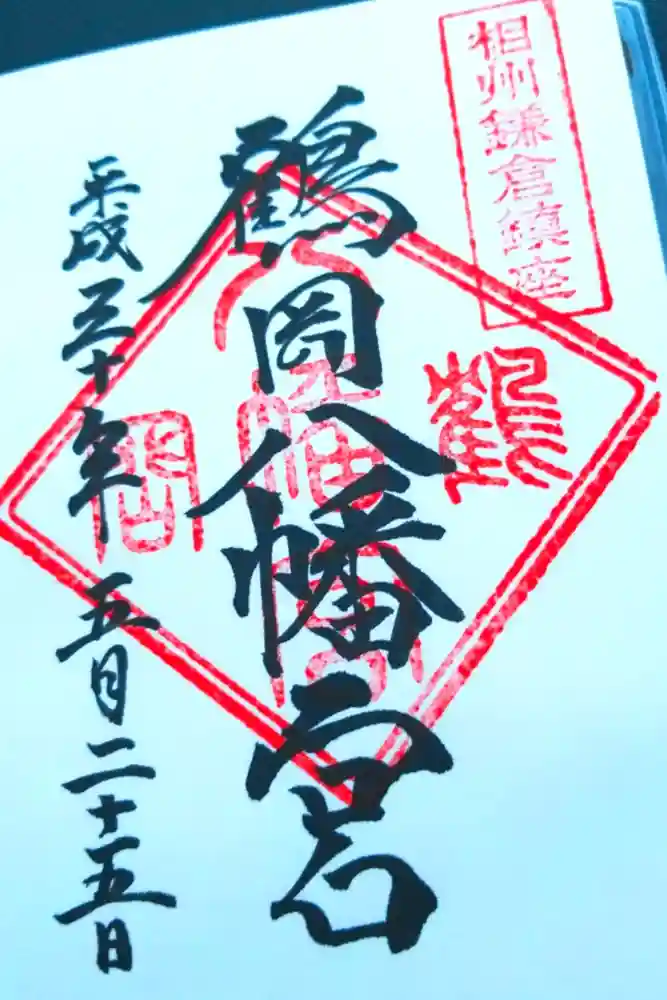 相州鎌倉鎮座
鶴岡八幡宮
鶴岡八幡宮
平成三十年五月二十五日